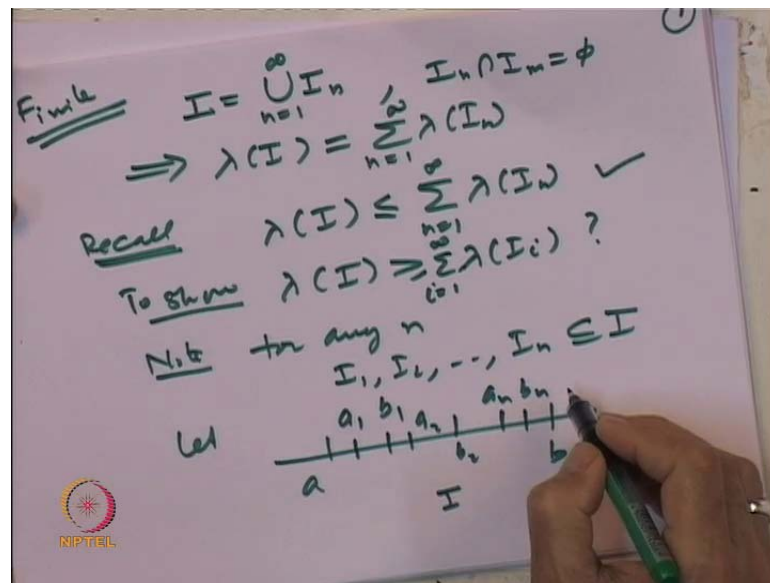 ①
Finite I = ∞⋃n=1 In , In ∩ Im = ϕ
⟹ λ(I) = ∞∑n=1 λ(In)
Recall λ(I) ≤ ∞∑n=1 λ(In) ✓
To show λ(I) ≥ ∞∑i=1 λ(Ii) ?
Note for any n
I1, I2, --, In ⊆ I
Let a a1 b1 a2 b2 an bn b
I
NPTEL